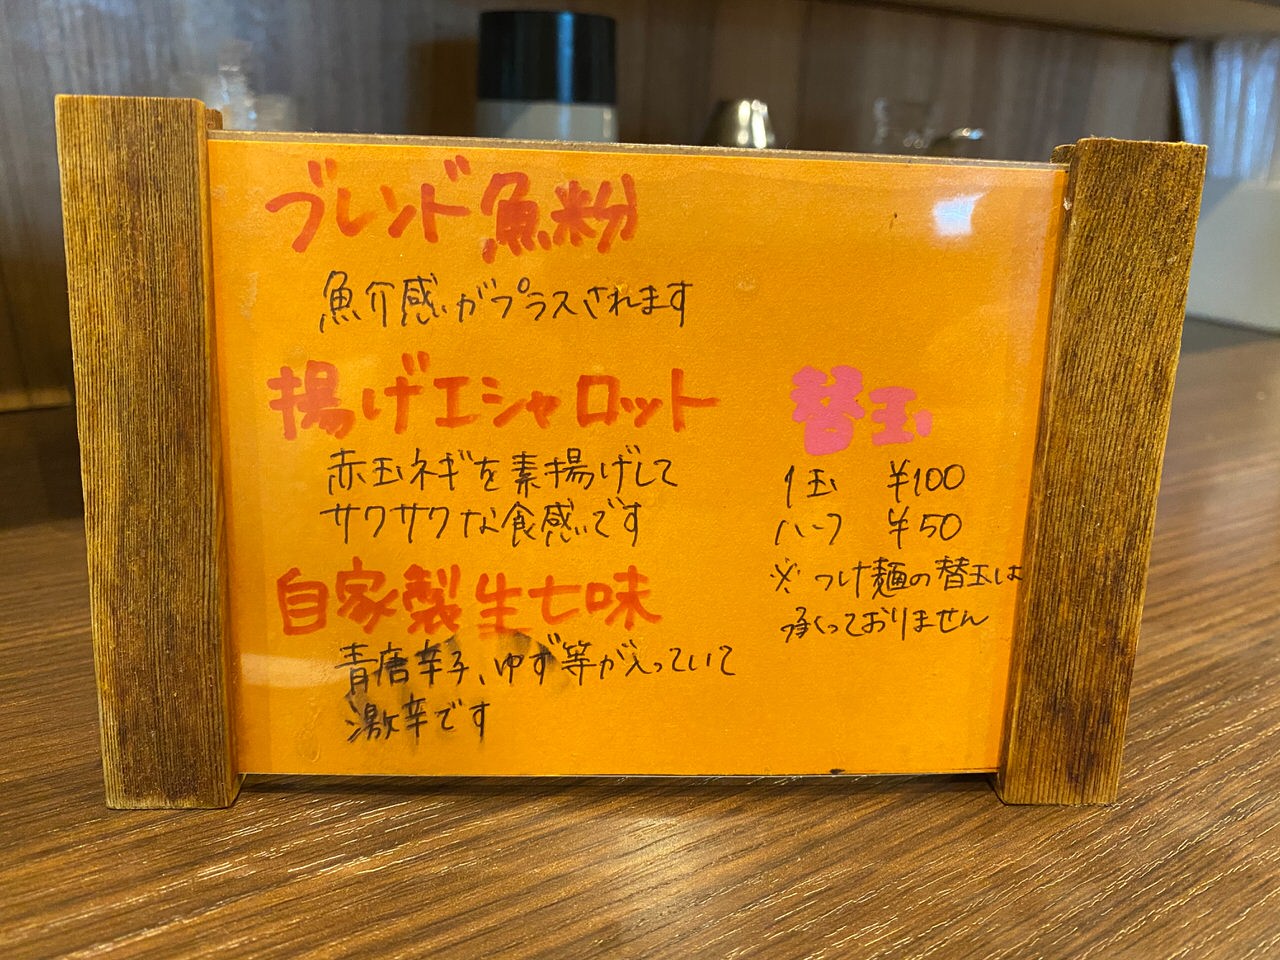 ブレンド魚粉
魚介感がプラスされます
揚げエシャロット
赤玉ネギを素揚げして
サクサクな食感です
自家製生七味
青唐辛子、ゆず等が入っていて
激辛です
替玉
1玉 ¥100
ハーフ ¥50
※つけ麺の替玉は
承くっておりません